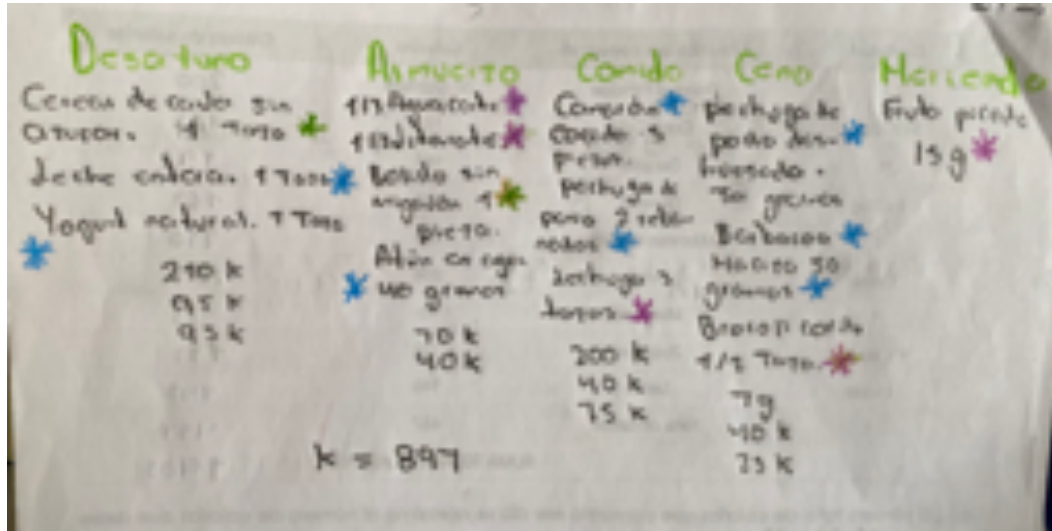 Desayuno
Cereal de caja sin
azucar. 1 Taza
Leche entera. 1 Taza
Yogurt natural. 1 Taza
210 k
95 k
95 k
Almuerzo
1/2 Aguacate
1 Jitomate
Bolillo sin
migajón 1
pieza.
Atún en agua
40 gramos
70 k
40 k
Comida
Camarón
cocido 5
piezas.
pechuga de
pavo 2 reba-
nadas
Lechuga 3
tazas
200 k
40 k
75 k
Cena
pechuga de
pollo des-
gramos
Barbacoa
gramos
Brocoli cocido
1/2 Taza
7g
40 k
25 k
Merienda
Fruta picada
15 g
k = 897